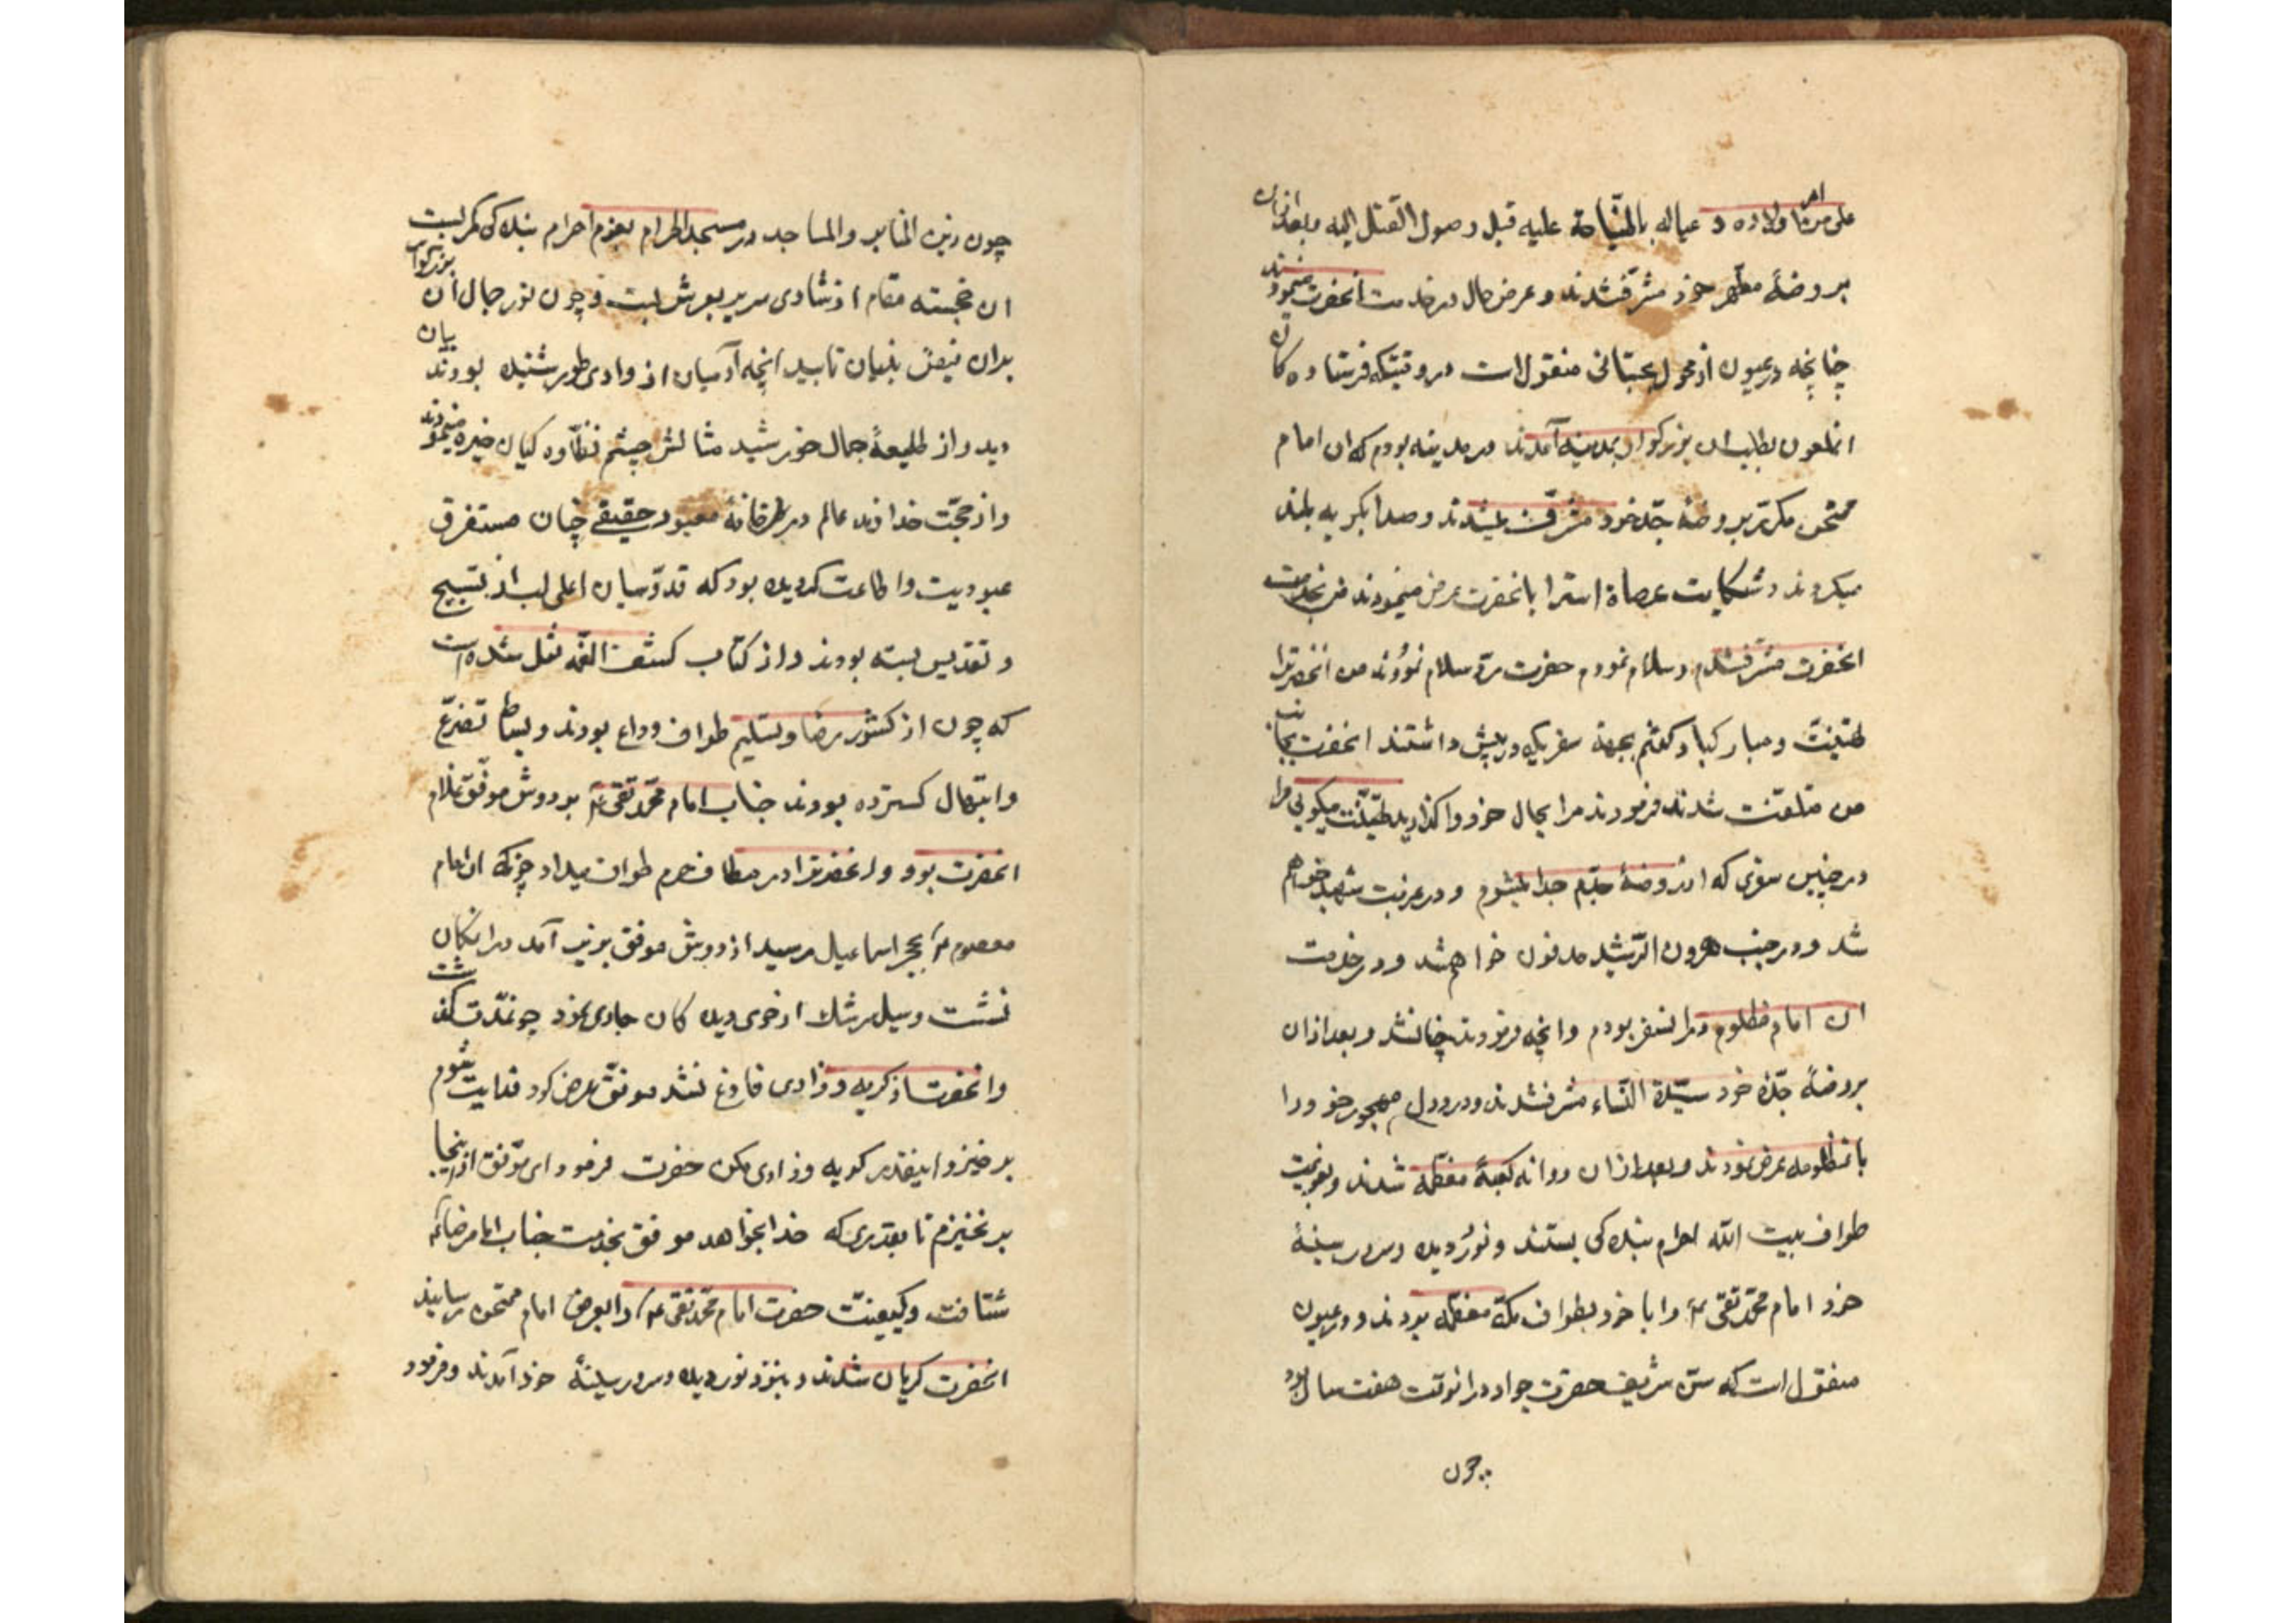 علی من امر اولاده و عیاله بالنّیاحة علیه قبل وصول القتل الیه وبعد ازان
بروضهٔ مطهر جد مشرّف شدند و عرض حال در خدمت انحضرت نمودند
چنانچه در عیون از محول سجستانی منقول است در وقتیکه فرستاده کان
انملعون بطلب ان بزرکوار بمدینه آمدند در مدینه بودم که ان امام
ممتحن مکرّر بروضهٔ جدّ خود مشرّف میشدند و صدا بکریه بلند
میکردند و شکایت عصاة امترا بانحضرت عرض مینمودند من بخدمت
انحضرت مشرفشدم و سلام نمودم حضرت ردّ سلام نمودند من انحضرترا
تهنیت و مبارکباد کفتم بجهة سفریکه در پیش داشتند انحضرت بجانب
من ملتفت شدند فرمودند مرا بحال خود واکذارید تهنیت میکویی مرا
در چنین سفری که از روضهٔ جدّم جدا میشوم و در غربت شهید خواهم
شد و در جنب هرون الرّشید مدفون خواهمشد و در خدمت
ان امام مظلوم در انسفر بودم وانچه فرمودند چنانشد و بعد ازان
بروضهٔ جدّهٔ خود سیّدة النّساء مشرفشدند و درد دل مهجور خود را
بانمظلومه عرض نمودند و بعد ازان روانه کعبهٔ معظّمه شدند و بعزیمت
طواف بیت الله احرام بندکی بستند و نور دیده و سرور سینهٔ
خود امام محمّد تقی ع را با خود بطواف مکّهٔ معظّمه بودند و در عیون
منقول است که سنّ شریف حضرت جواد در انوقت هفت سال بود
چون
چون زین المنابر والمساجد در مسجد الحرام بعزم احرام بندکی کمر بست
ان خجسته مقام از شادی سریر بعرش بست و چون نور جمال آن بزرکوار
بدان فیض بنیان تابید انچه آدمیان از وادی طور شنیده بودند بیان
دید و از طلیعهٔ جمال خورشید مثالش چشم نظّاره کیان خیره مینمودند
و از حجّت خداوند عالم در طرخانهٔ معبود حقیقی چنان مستغرق
عبودیت و اطاعت کردیده بود که قدّوسیان اعلی لب از تسبیح
و تقدیس بسته بودند و از کتاب کشف الغمّه نقل شده است
که چون از کشور رضا و تسلیم طواف وداع بودند و بساط تضرّع
و ابتهال کسترده بودند جناب امام محمّد تقی ع بر دوش موفّق غلام
انحضرت بود و انحضرترا در مطاف حرم طواف میداد چونکه ان امام
معصوم ع بحجر اسماعیل رسید از دوش موفق بزیر آمد در انمکان
نشست و سیل سرشک از خوی دیده کان جاری نمود چونمدّت کذشت
و انحضرت از کریه و زاری فارغ نشد موفّق عرض کرد فدایت شوم
برخیز و اینقدر کریه و زاری مکن حضرت فرمود ای موّفق از اینجا
برنخیزم تا بقدری که خدا بخواهد موفق بخدمت جناب امام رضا ع
شتافت و کیفیّت حضرت امام محمّد تقی ع را بعرض امام ممتحن رسانید
انحضرت کریان شدند و بنزد نور دیده و سرور سینهٔ خود آمدند و فرمود